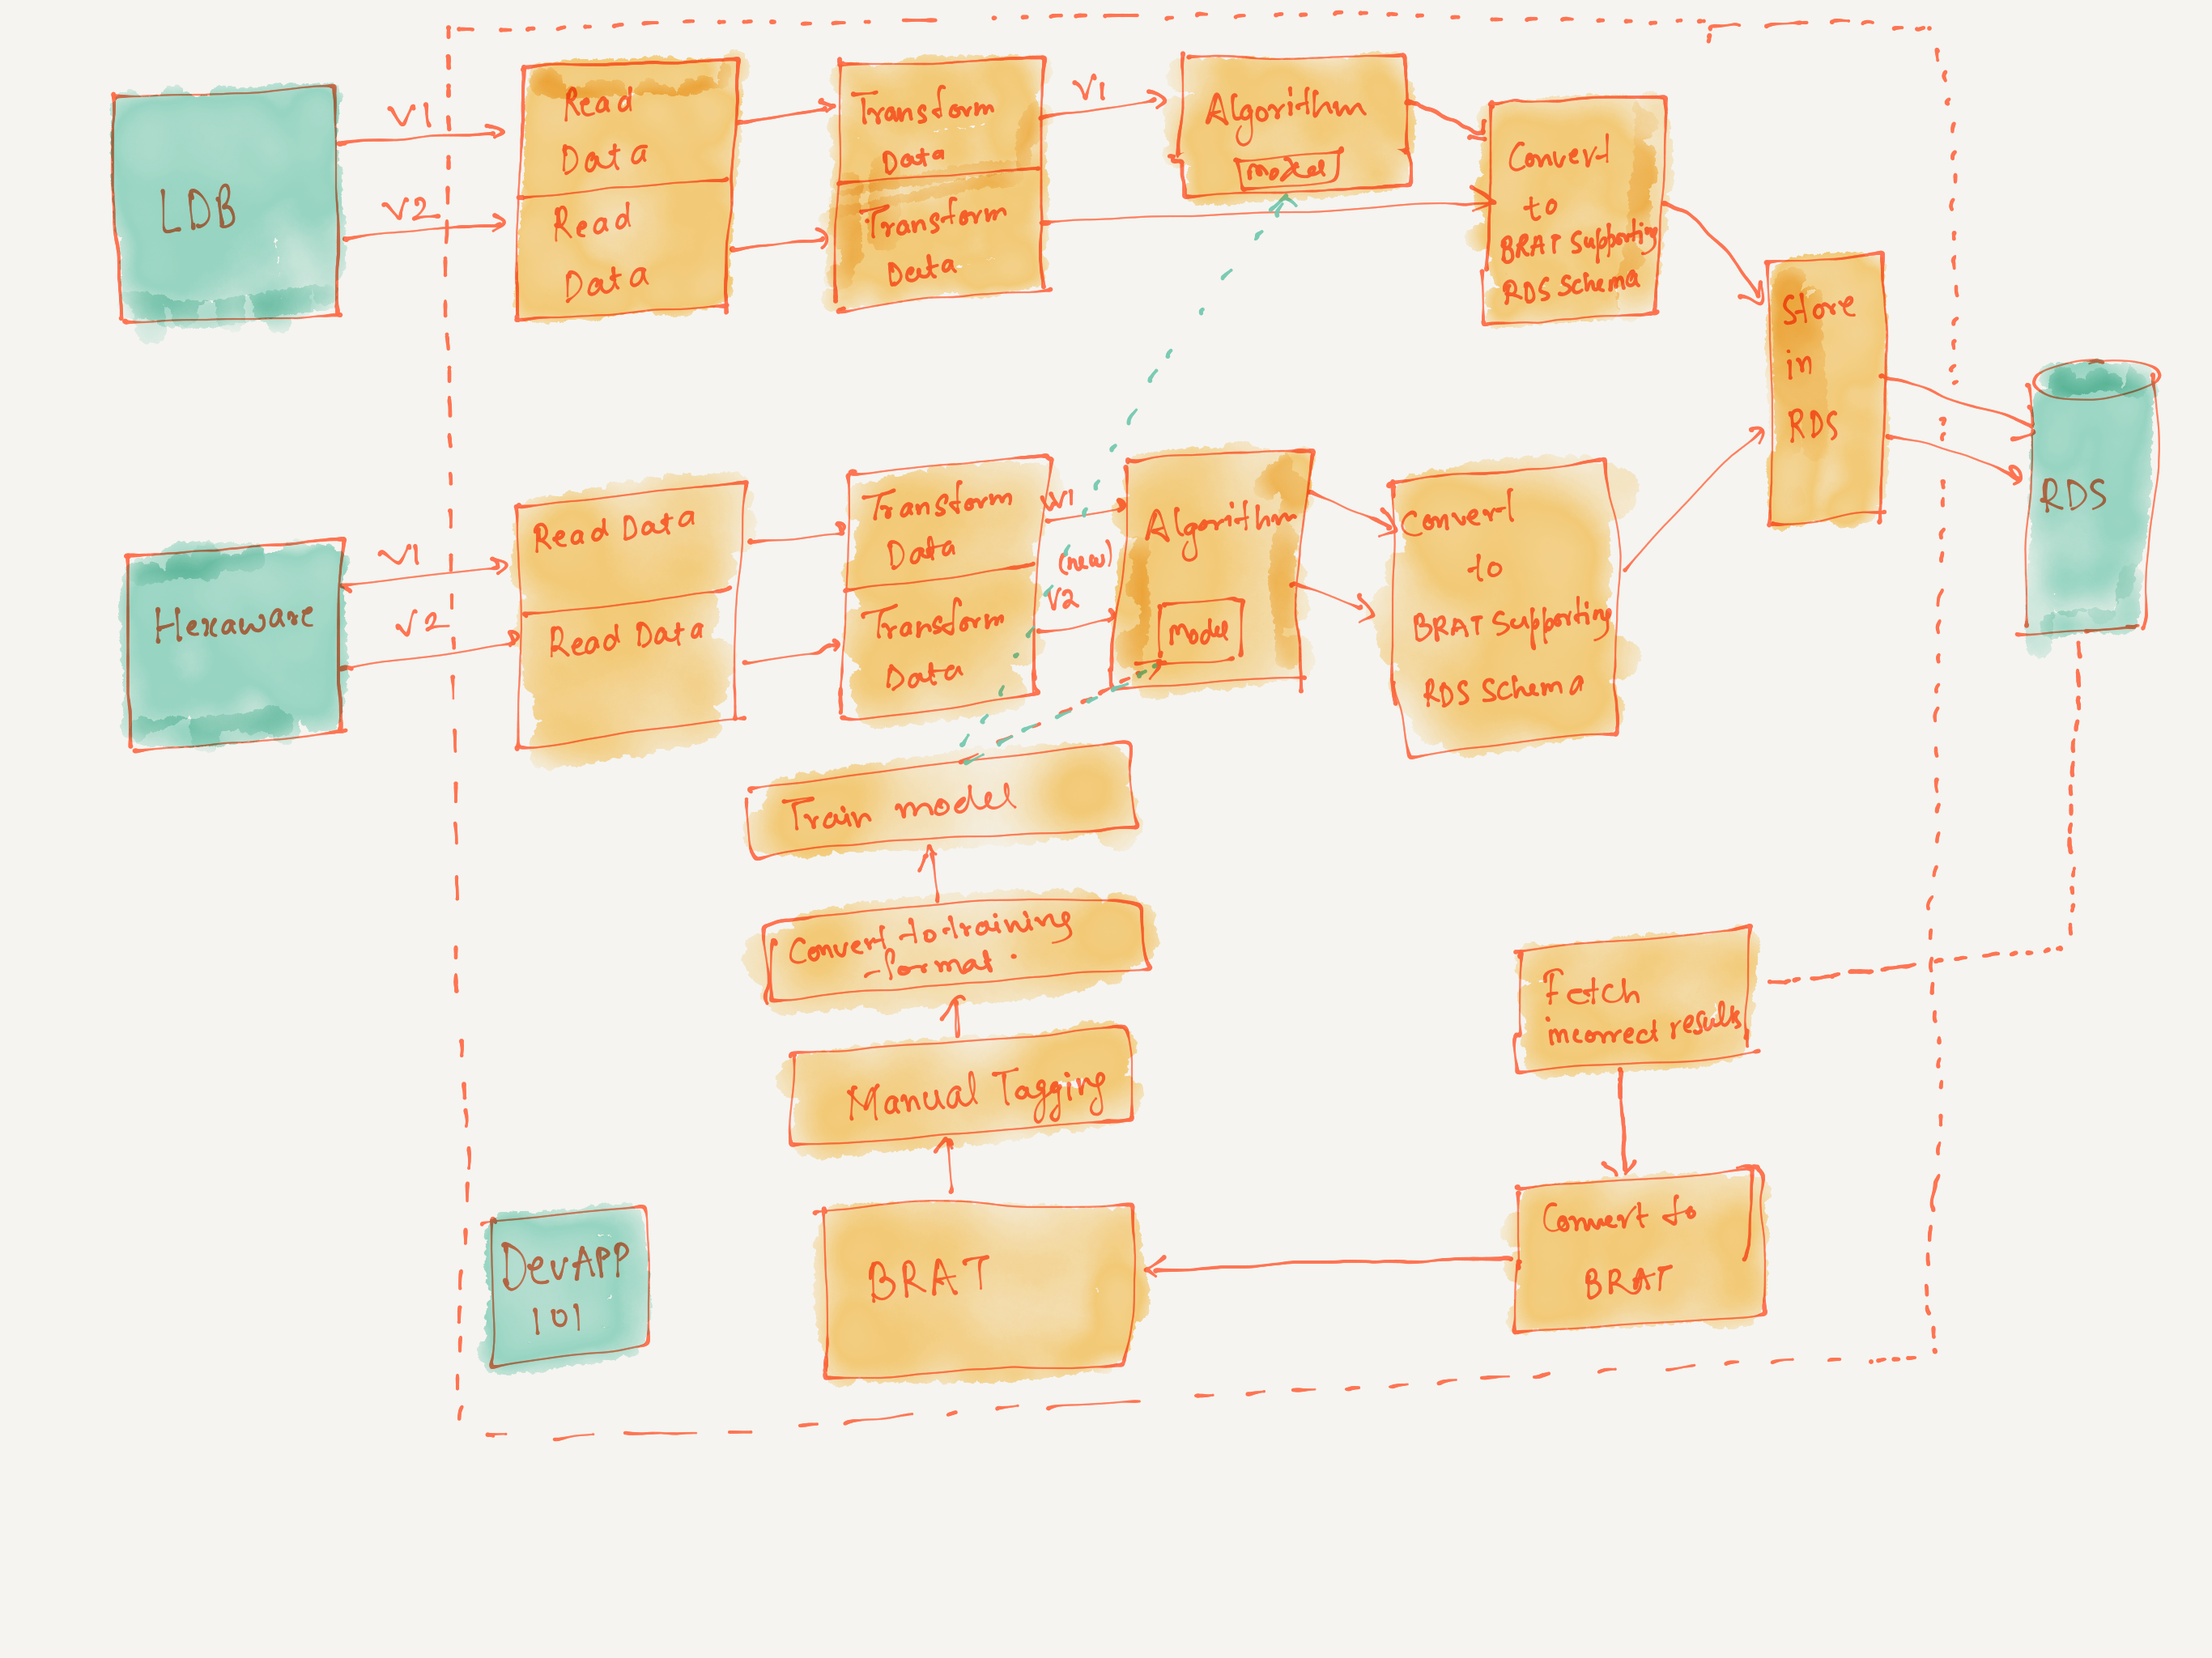 LDB
V1
V2
Read
Data
Read
Data
Transform
Data
Transform
Data
V1
Algorithm
Model
Convert
to
BRAT Supporting
RDS Schema
Store
in
RDS
RDS
Hexaware
V1
V2
Read Data
Read Data
Transform
Data
Transform
Data
V1
(new)
V2
Algorithm
Model
Convert
to
BRAT Supporting
RDS Schema
Train model
Convert to training
format.
Manual Tagging
BRAT
Fetch
incorrect results
Convert to
BRAT
DevAPP
101